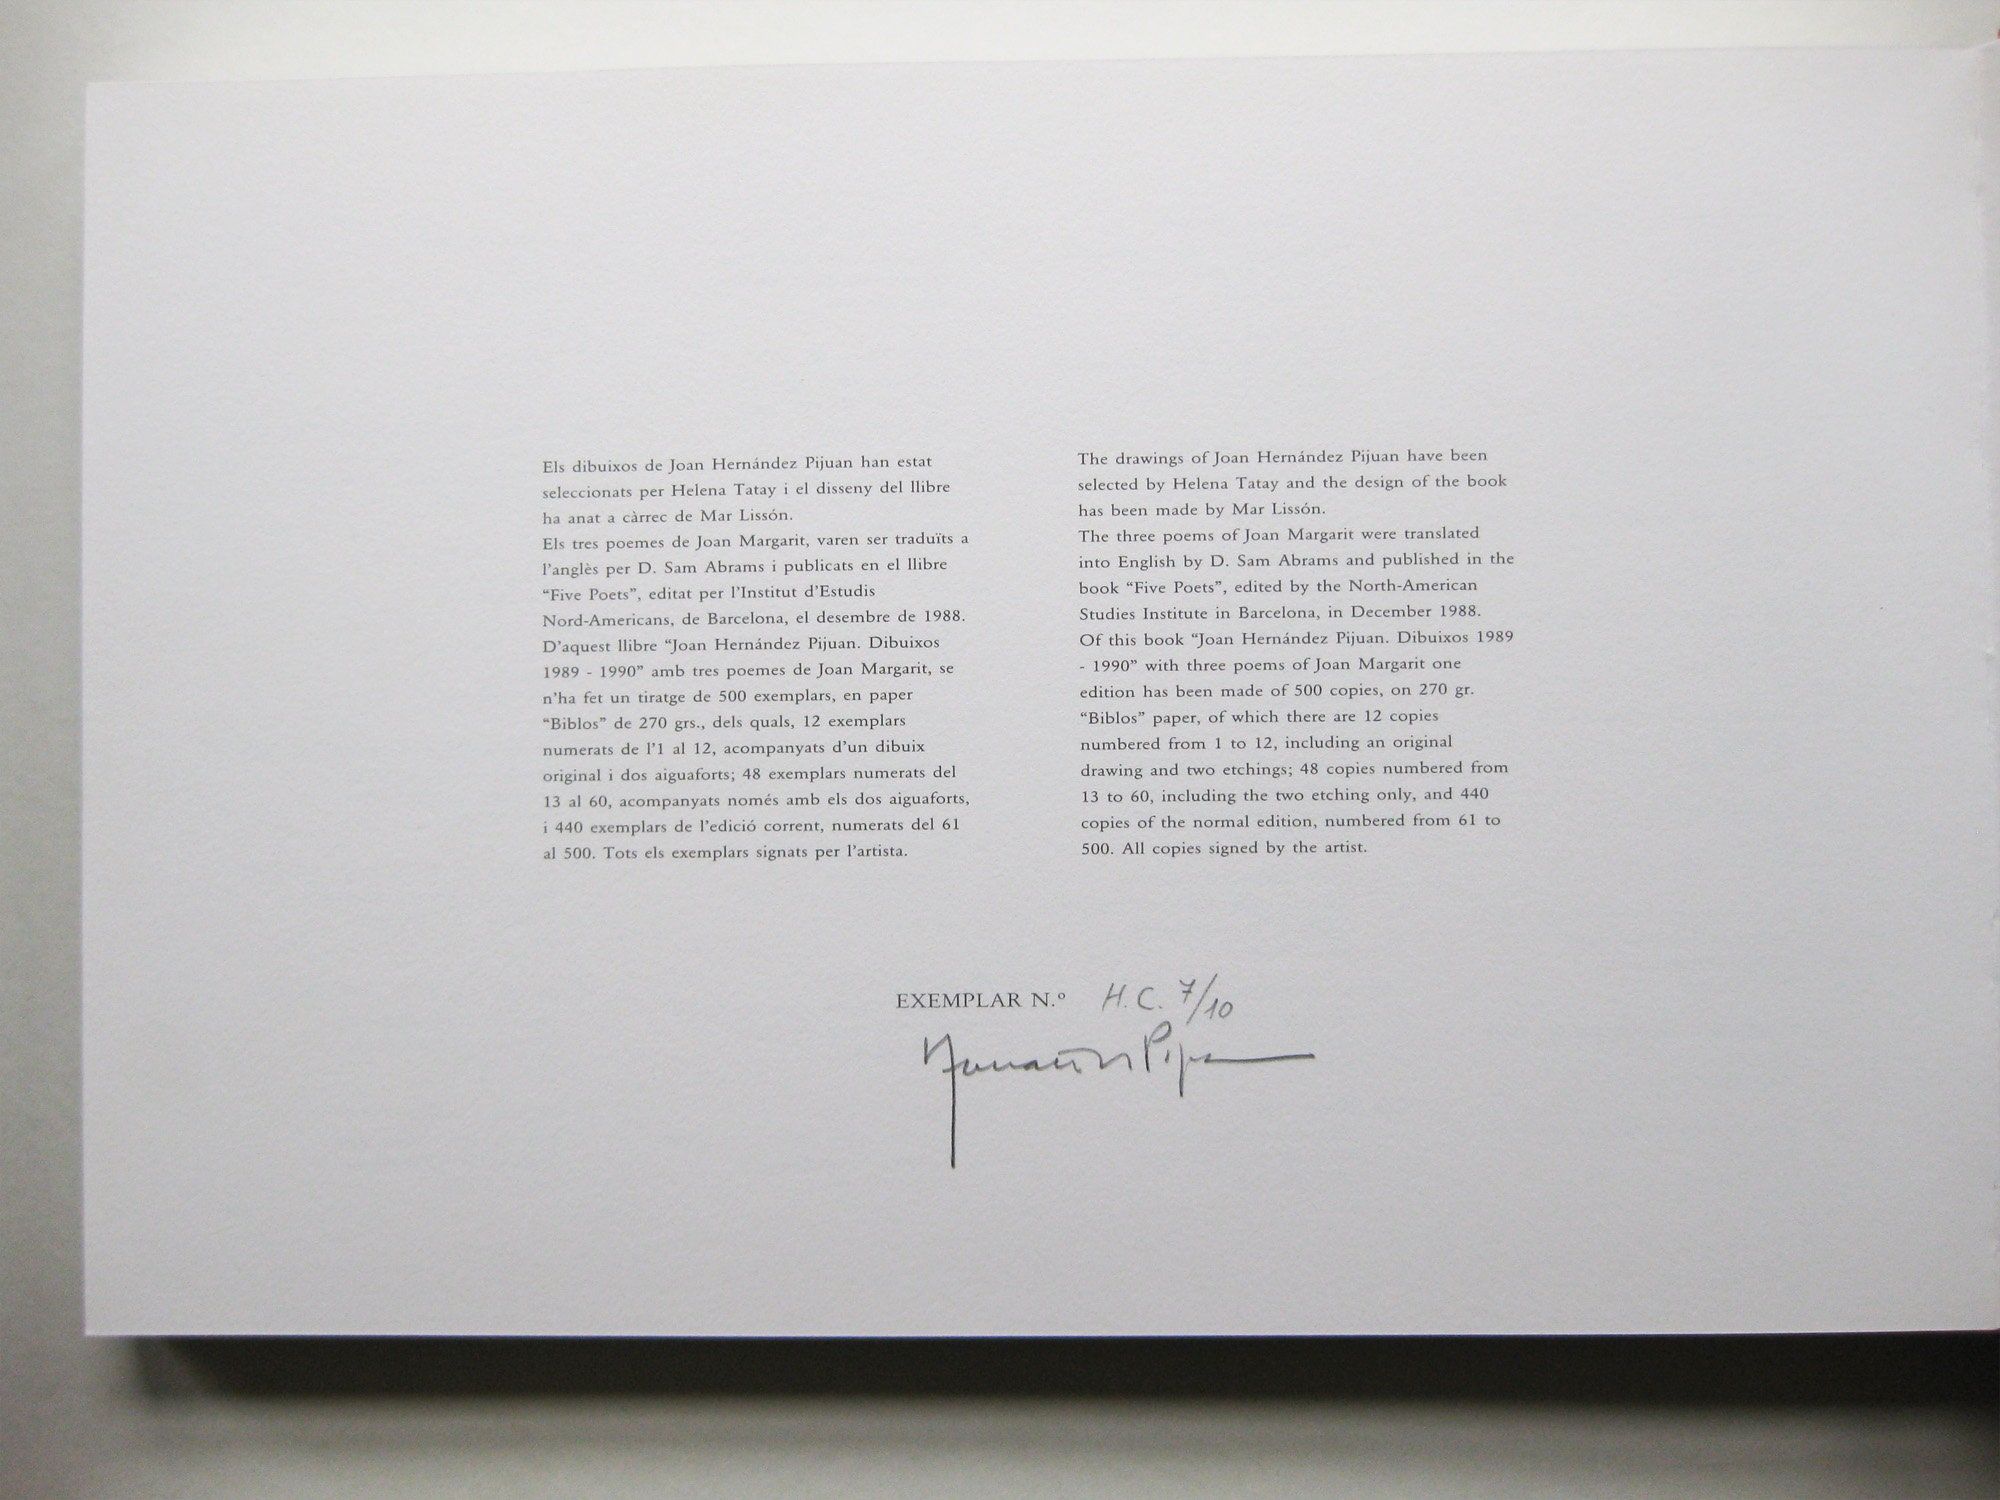 Els dibuixos de Joan Hernández Pijuan han estat
seleccionats per Helena Tatay i el disseny del llibre
ha anat a càrrec de Mar Lissón.
Els tres poemes de Joan Margarit, varen ser traduïts a
l'anglès per D. Sam Abrams i publicats en el llibre
“Five Poets”, editat per l'Institut d'Estudis
Nord-Americans, de Barcelona, el desembre de 1988.
D'aquest llibre “Joan Hernández Pijuan. Dibuixos
1989 - 1990” amb tres poemes de Joan Margarit, se
n'ha fet un tiratge de 500 exemplars, en paper
“Biblos” de 270 grs., dels quals, 12 exemplars
numerats de l'1 al 12, acompanyats d'un dibuix
original i dos aiguaforts; 48 exemplars numerats del
13 al 60, acompanyats només amb els dos aiguaforts,
i 440 exemplars de l'edició corrent, numerats del 61
al 500. Tots els exemplars signats per l'artista.
The drawings of Joan Hernández Pijuan have been
selected by Helena Tatay and the design of the book
has been made by Mar Lissón.
The three poems of Joan Margarit were translated
into English by D. Sam Abrams and published in the
book “Five Poets”, edited by the North-American
Studies Institute in Barcelona, in December 1988.
Of this book “Joan Hernández Pijuan. Dibuixos 1989
- 1990” with three poems of Joan Margarit one
edition has been made of 500 copies, on 270 gr.
“Biblos” paper, of which there are 12 copies
numbered from 1 to 12, including an original
drawing and two etchings; 48 copies numbered from
13 to 60, including the two etching only, and 440
copies of the normal edition, numbered from 61 to
500. All copies signed by the artist.
EXEMPLAR N.º H.C. 7/10